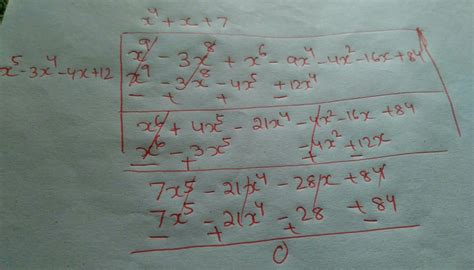 x⁴ + x + 7
x⁵ - 3x⁴ - 4x + 12
x⁹ - 3x⁸ + x⁶ - 9x⁴ - 4x² - 16x + 84
x⁹ - 3x⁸ - 4x⁵ + 12x⁴
- + + -
x⁶ + 4x⁵ - 21x⁴ - 4x² - 16x + 84
x⁶ - 3x⁵ - 4x² + 12x
- + + -
7x⁵ - 21x⁴ - 28x + 84
7x⁵ - 21x⁴ - 28 + 84
- + + -
0